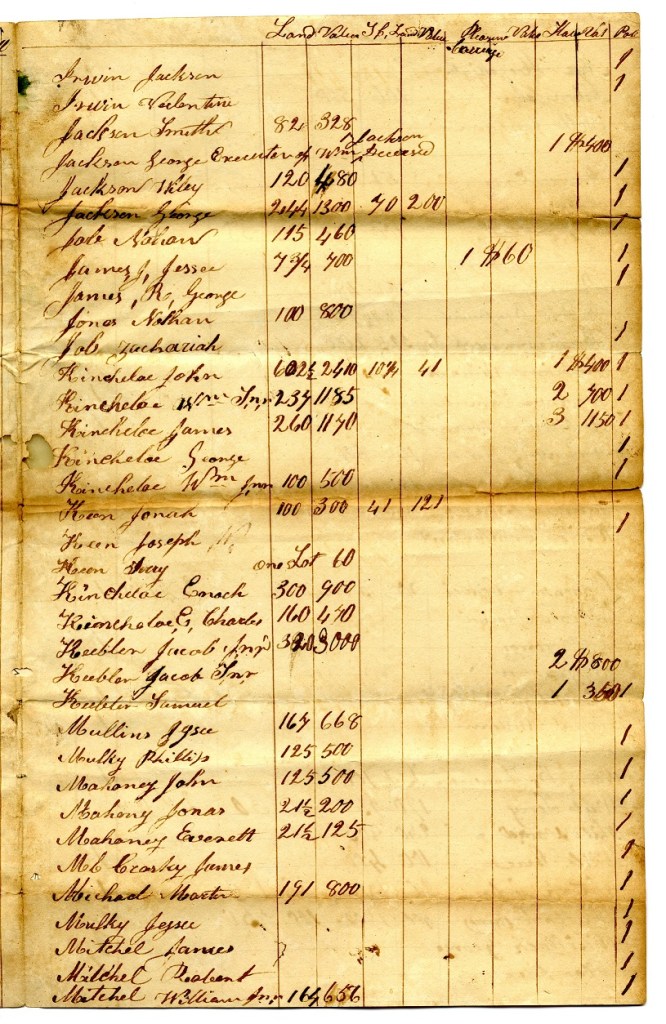 Land Value T.L. Land Value Pleasure Carriage Value Slave Val Pole
Irwin Jackson 1
Irwin Valentine 1
Jackson Smith 82 328
Jackson George Executor of Wm Jackson Deceased 1 $400
Jackson Wiley 120 480 1
Jackson George 244 1300 70 200 1
Job Nathan 115 460 1
James, J, Jessee 7 3/4 700 1 $60 1
James, R, George 1
Jones Nathan 100 800
Job Zachariah 1
Kincheloe John 602 1/2 2410 10 1/4 41 1 $400 1
Kincheloe Wm Snr 237 1185 2 700 1
Kincheloe James 260 1170 3 1150 1
Kincheloe George 1
Kincheloe Wm Jnr 100 500 1
Keen Jonah 100 300 41 121
Keen Joseph 1
Keen one Lot 60
Kincheloe Enoch 300 900
Kincheloe E, Charles 160 450
Keebler Jacob Jnr 320 3000
Keebler Jacob Snr 2 $800
Keebler Samuel 1 350 1
Mullins Jesse 167 668
Mulky Phillip 125 500 1
Mahoney John 125 500 1
Mahony Jonas 21 1/2 200 1
Mahoney Everett 21 1/2 125 1
Mc Crosky James 1
Michael Martin 191 800 1
Mulky Jesse 1
Mitchel James 1
Mitchel Robert 1
Mitchel William Jnr 164 656 1